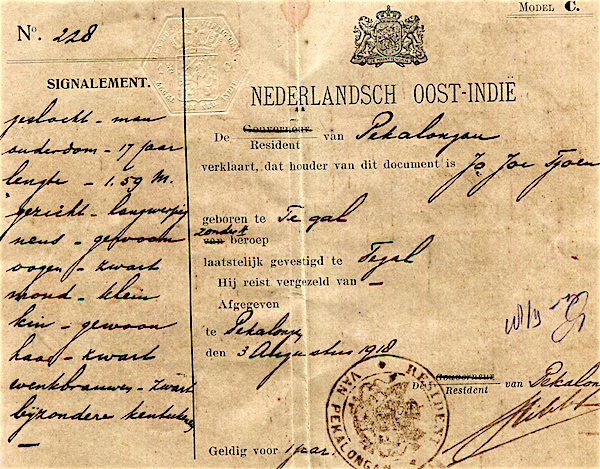 MODEL C.
No. 228
SIGNALEMENT.
geslacht - man
ouderdom - 17 jaar
lengte - 1.59 M.
gezicht - langwerpig
neus - gewoon
oogen - zwart
mond - klein
kin - gewoon
haar - zwart
wenkbrauwen - zwart
bijzondere kenteekenen
-
NEDERLANDSCH OOST-INDIË
De Gouverneur van Pekalongan
Resident
verklaart, dat houder van dit document is Jo Joe Tjoen
geboren te Tegal
zonder
van beroep
laatstelijk gevestigd te Tegal
Hij reist vergezeld van -
Afgegeven
te Pekalongan
den 3 Augustus 1918
De Gouverneur van Pekalongan
Resident
RESIDENT VAN PEKALONGAN
Geldig voor 1 jaar.